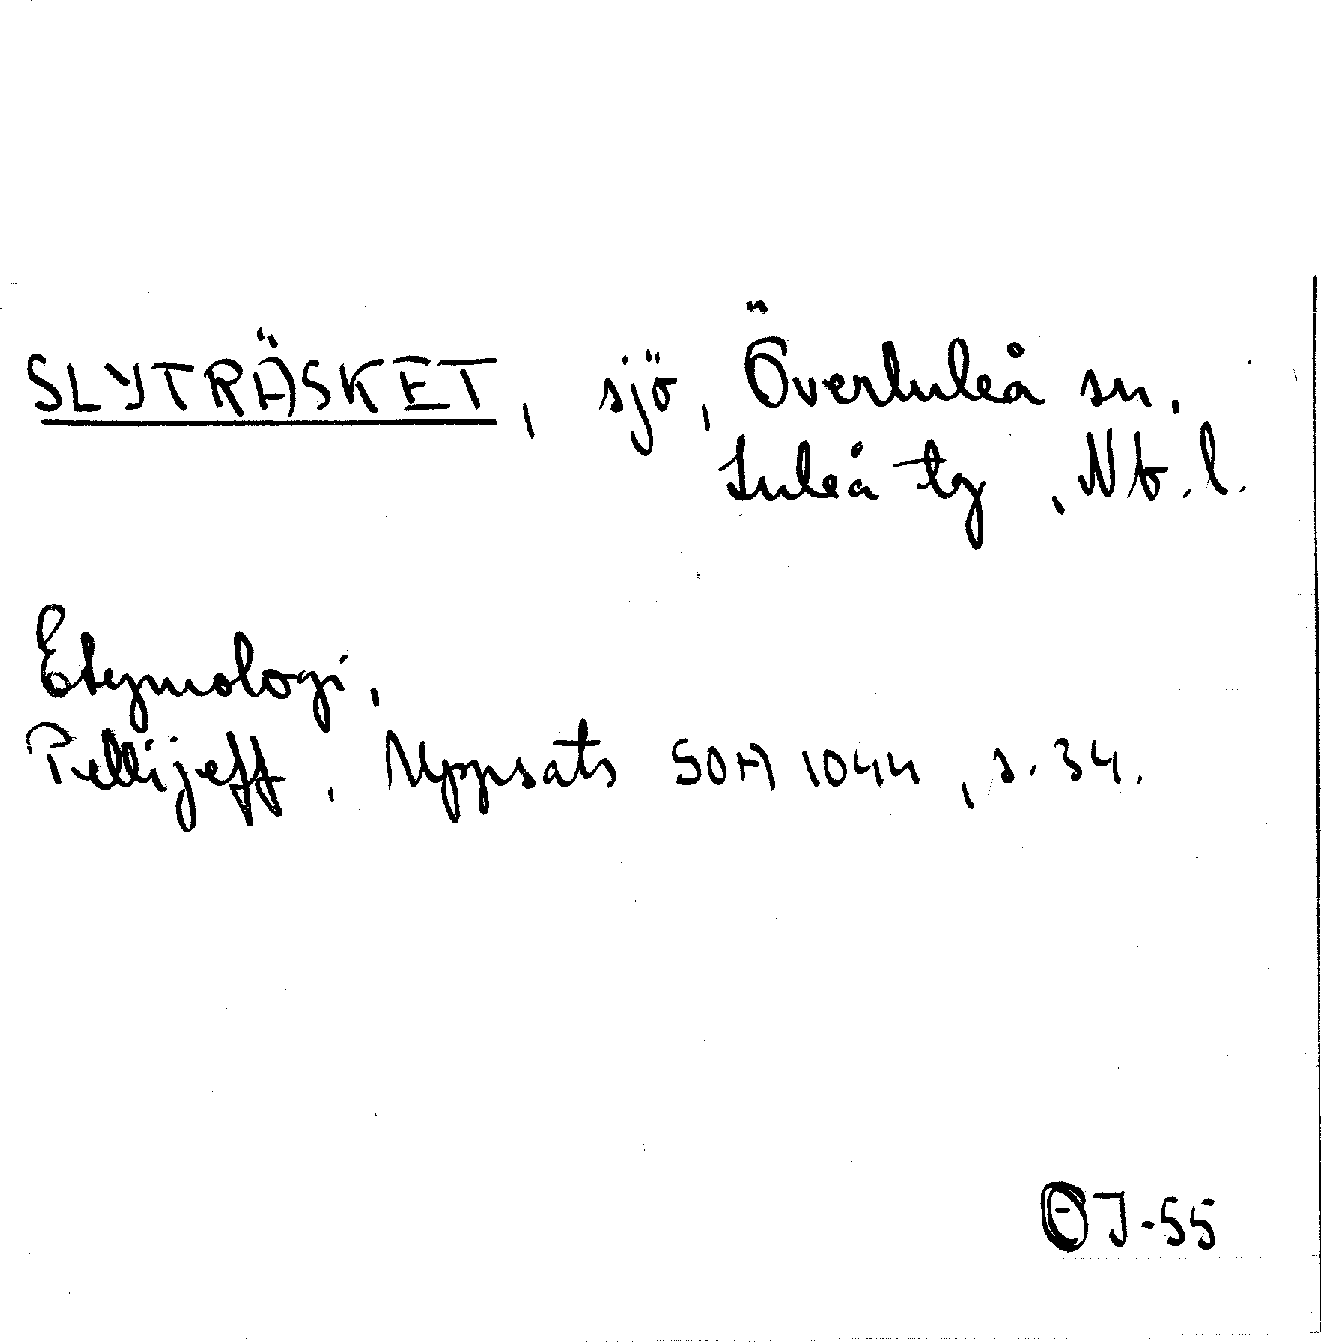 SLYTRÄSKET, sjö, Överluleå sn.
Luleå tg, Nb.l.
Etymologi,
Pellijeff, Uppsats SOA 1044, s. 34.
ÖJ-55